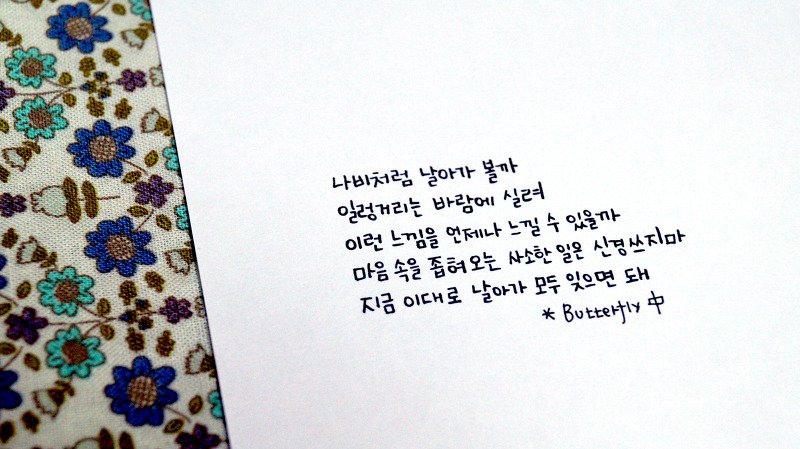 나비처럼 날아가 볼까
일렁거리는 바람에 실려
이런 느낌을 언제나 느낄 수 있을까
마음 속을 좁혀오는 사소한 일은 신경쓰지마
지금 이대로 날아가 모두 잊으면 돼
* Butterfly 中